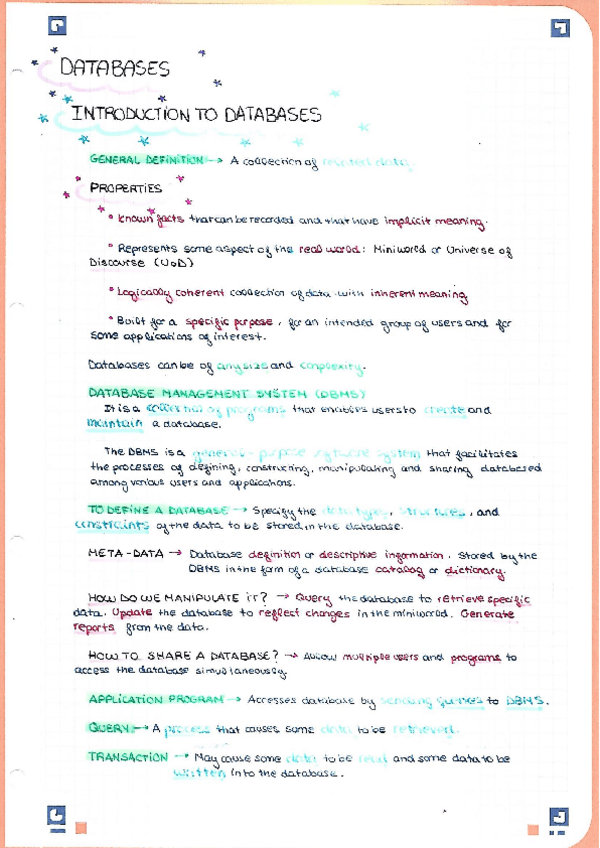 DATABASES
INTRODUCTION TO DATABASES
GENERAL DEFINITION → A collection of related data.
PROPERTIES
* Known facts that can be recorded and that have implicit meaning.
* Represents some aspect of the real world: Miniworld or Universe of
Discourse (UoD)
* Logically coherent collection of data with inherent meaning
* Built for a specific purpose, for an intended group of users and for
some applications of interest.
Databases can be of any size and complexity.
DATABASE MANAGEMENT SYSTEM (DBMS)
It is a collection of programs that enables users to create and
maintain a database.
The DBMS is a general-purpose software system that facilitates
the processes of defining, constructing, manipulating and sharing databased
among various users and applications.
TO DEFINE A DATABASE → Specify the data types, structures, and
constraints of the data to be stored in the database.
META-DATA → Database definition or descriptive information. Stored by the
DBMS in the form of a database catalog or dictionary.
HOW DO WE MANIPULATE IT? → Query the database to retrieve specific
data. Update the database to reflect changes in the miniworld. Generate
reports from the data.
HOW TO SHARE A DATABASE? → Allow multiple users and programs to
access the database simultaneously.
APPLICATION PROGRAM → Accesses database by sending queries to DBMS.
QUERY → A process that causes some data to be retrieved.
TRANSACTION → May cause some data to be read and some data to be
written into the database.